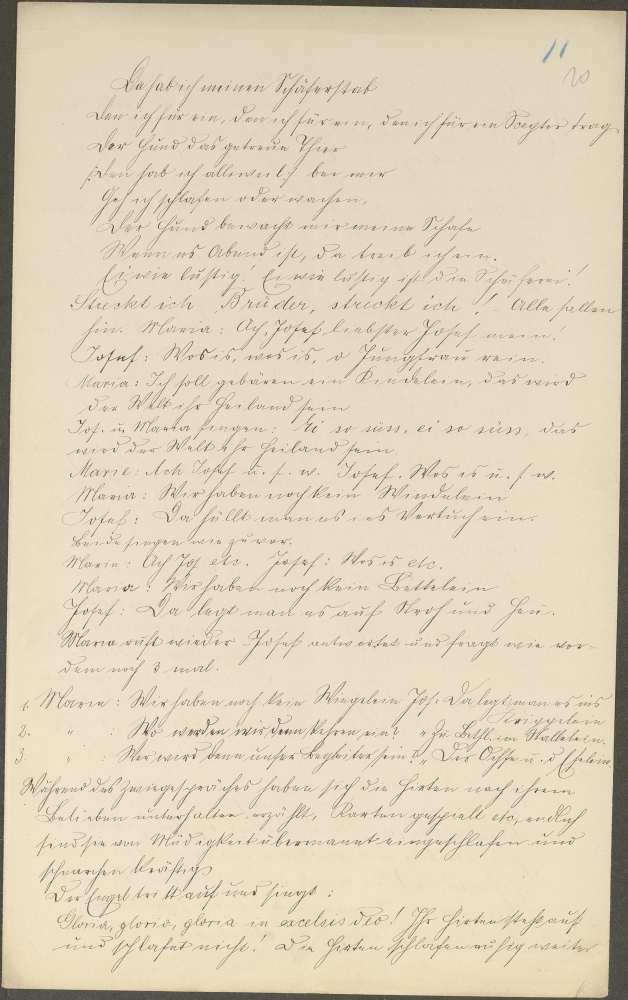 11
20
Da hab ich meinen Schäferstab
Den ich für ein, den ich für ein, den ich für ein Scepter trag
Der Hund das getreue Thier
/:Den hab ich alleweil:/ bei mir
Geh ich schlafen oder wachen,
Der Hund bewacht mir meine Schafe
Wenn es Abend ist, da treib ich ein.
Ei wie lustig! Ei wie lustig ist die Schäferei!
Streckt ich Brüder, streckt ich! - Alle fallen
hin. Maria: Ach, Josef, liebster Josef mein!
Josef: Wos is, wos is, o Jungfrau rein.
Maria: Ich soll gebären ein Kindelein, das wird
der Welt ihr Heiland sein
Jos. u. Maria singen: Ei so süss, ei so süss, das
wird der Welt ihr Heiland sein
Marie: Ach Josef u. s. w. Josef. Wos is u. s. w.
Maria: Wir haben noch kein Windelein
Josef: Da hüllt man es ins Vertuch ein.
Beide singen wie zuvor.
Marie: Ach Jos etc. Josef: Wos is etc.
Maria: Wir haben noch kein Bettelein
Josef: Da legt man es auf Stroh und Heu.
Maria ruft wieder Josef antwortet und fragt wie vor-
dem noch 3 mal.
1. Marie: Wir haben noch kein Wiegelein Jos. Da legt man es ins
Krippelein
2. " : Wo werden wir denn kehren ein? " Zu Bethl. im Stallelein.
3. " : Wer wird denn unser Begleiter sein? " Der Ochse u. d. Eselein
Während des Zwiegespräches haben sich die Hirten nach ihrem
Belieben unterhalten erzählt, Karten gespielt etc, endlich
sind sie von Müdigkeit übermannt eingeschlafen und
schnarchen kräftig
Der Engel tritt auf und singt:
Gloria, gloria, gloria in excelsis deo! Ihr Hirten steht auf
und schlafet nicht! Die Hirten schlafen ruhig weiter